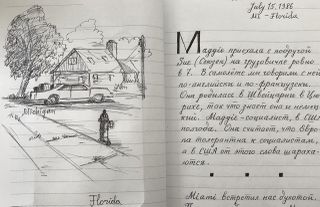 Michigan
Florida
July 15, 1986
Mi - Florida
Maggie приехала с подругой
Sue (Сьюзен) на грузовичке ровно
в 7. В самолёте мы говорили с ней
по-английски и по-французски.
Она родилась в Швейцарии в Цю-
рихе, так что знает она и немец-
кий. Maggie - социалист, в США
полгода. Она считает, что Евро-
па толерантна к социалистам,
а в США от этого слова шараха-
ются.
Miami встретил нас духотой.